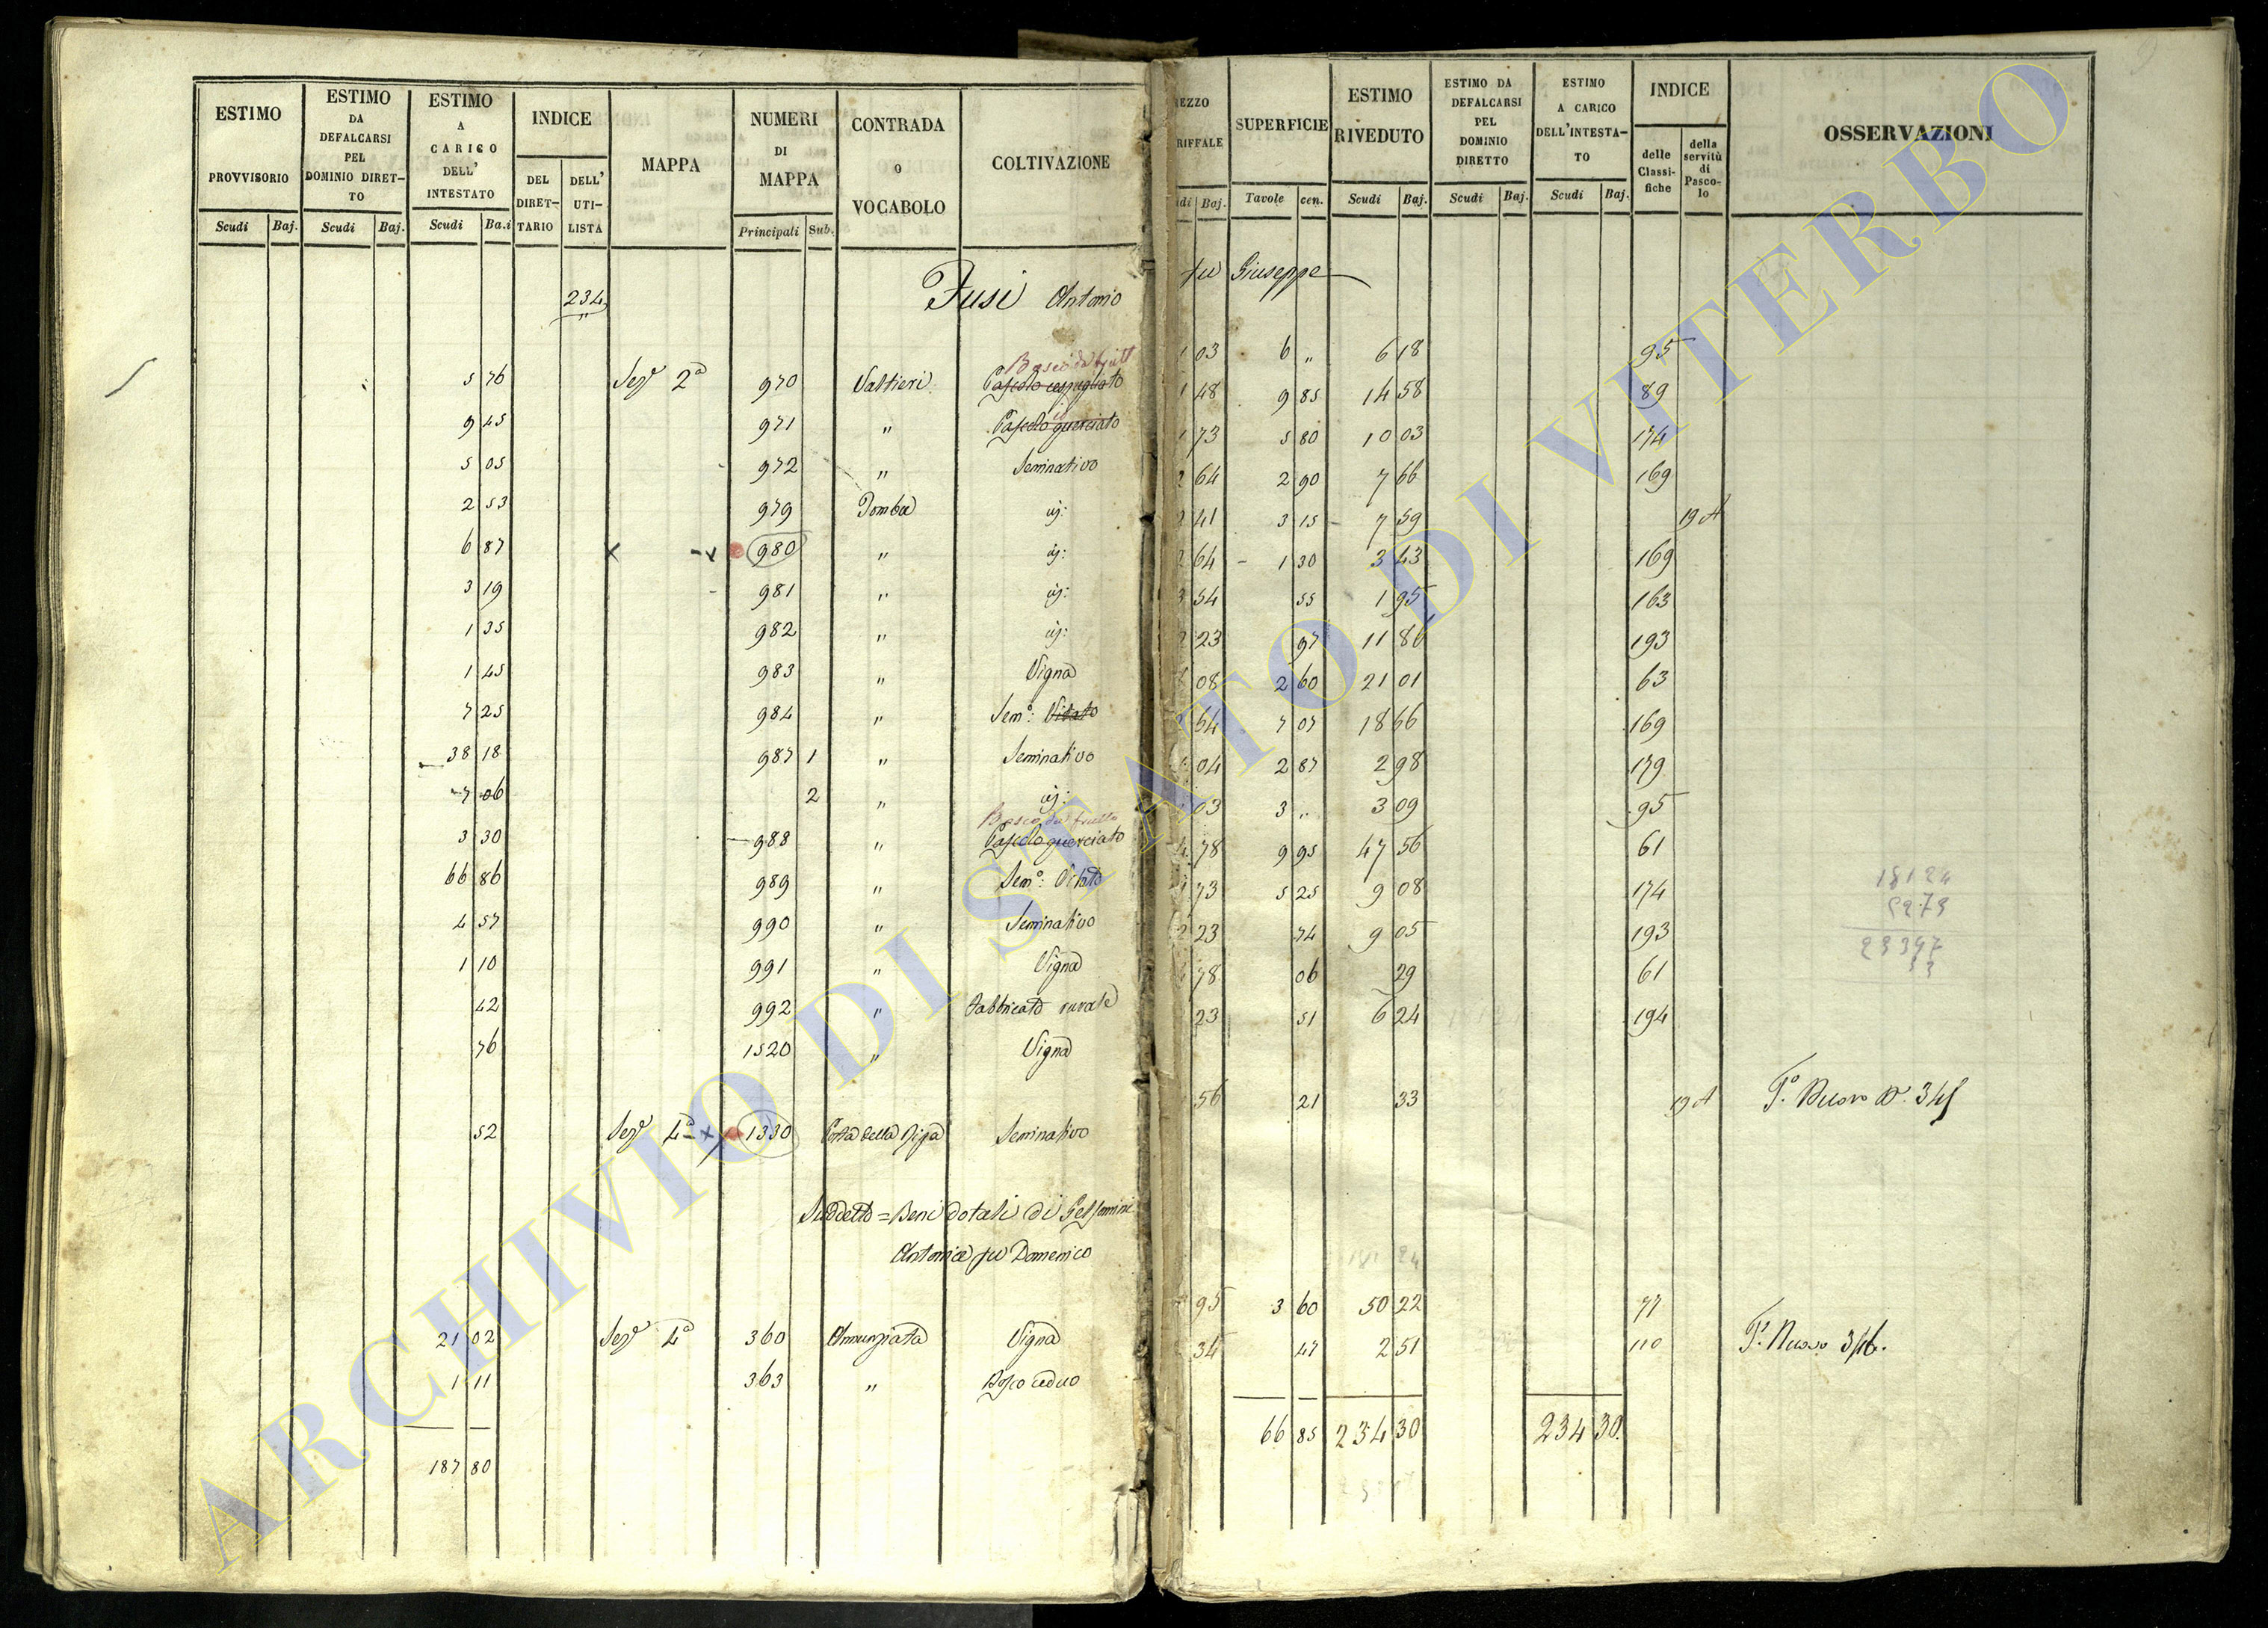 ESTIMO PROVVISORIO
Scudi Baj.
ESTIMO DA DEFALCARSI PEL DOMINIO DIRET-TO
Scudi Baj.
ESTIMO A CARICO DELL' INTESTATO
Scudi Ba.i
INDICE
DEL DIRET-TARIO
DELL' UTI-LISTA
MAPPA
NUMERI DI MAPPA
Principali Sub.
CONTRADA O VOCABOLO
COLTIVAZIONE
234
Fusi Antonio
Bosco da frutto
5 76 Sezᵉ 2ª 970 Valtieri Pascolo cespugliato
9 45 971 " Pascolo querciato
5 05 972 " Seminativo
2 53 979 Tomba id:
6 87 980 " id:
3 19 981 " id:
1 35 982 " id:
1 45 983 " Vigna
7 25 984 " Semº: Vitato
38 18 987 1 " Seminativo
7 06 2 " id:
Bosco da frutto
3 30 988 " Pascolo querciato
66 86 989 " Semº: Vitato
4 57 990 " Seminativo
1 10 991 " Vigna
42 992 " Fabbricato rurale
76 1520 " Vigna
52 Sezᵉ 4ª 1330 Costa della Ripa Seminativo
Suddetto = Beni dotali di Gelsomini
Antonia fu Domenico
21 02 Sezᵉ 4ª 360 Annunziata Vigna
1 11 363 " Bosco ceduo
187 80
EZZO
RIFFALE
di Baj.
SUPERFICIE
Tavole cen.
ESTIMO RIVEDUTO
Scudi Baj.
ESTIMO DA DEFALCARSI PEL DOMINIO DIRETTO
Scudi Baj.
ESTIMO A CARICO DELL'INTESTA-TO
Scudi Baj.
INDICE
delle Classi-fiche
della servitù di Pasco-lo
OSSERVAZIONI
fu Giuseppe
1 03 6 " 6 18 95
1 48 9 85 14 58 89
1 73 5 80 10 03 174
2 64 2 90 7 66 169
2 41 3 15 7 59 19 A
2 64 1 30 3 43 169
3 54 55 1 95 163
23 97 11 86 193
08 2 60 21 01 63
64 7 07 18 66 169
04 2 87 2 98 179
03 3 " 3 09 95
78 9 95 47 56 61
73 5 25 9 08 174
23 74 9 05 193
78 06 29 61
23 51 6 24 194
18124
5273
23397
33
56 21 33 19 A Tº. Nuovo Nº. 345
181 24
95 3 60 50 22 77
34 47 2 51 110 Tº. Nuovo 346.
66 85 234 30 234 30
ARCHIVIO DI STATO DI VITERBO